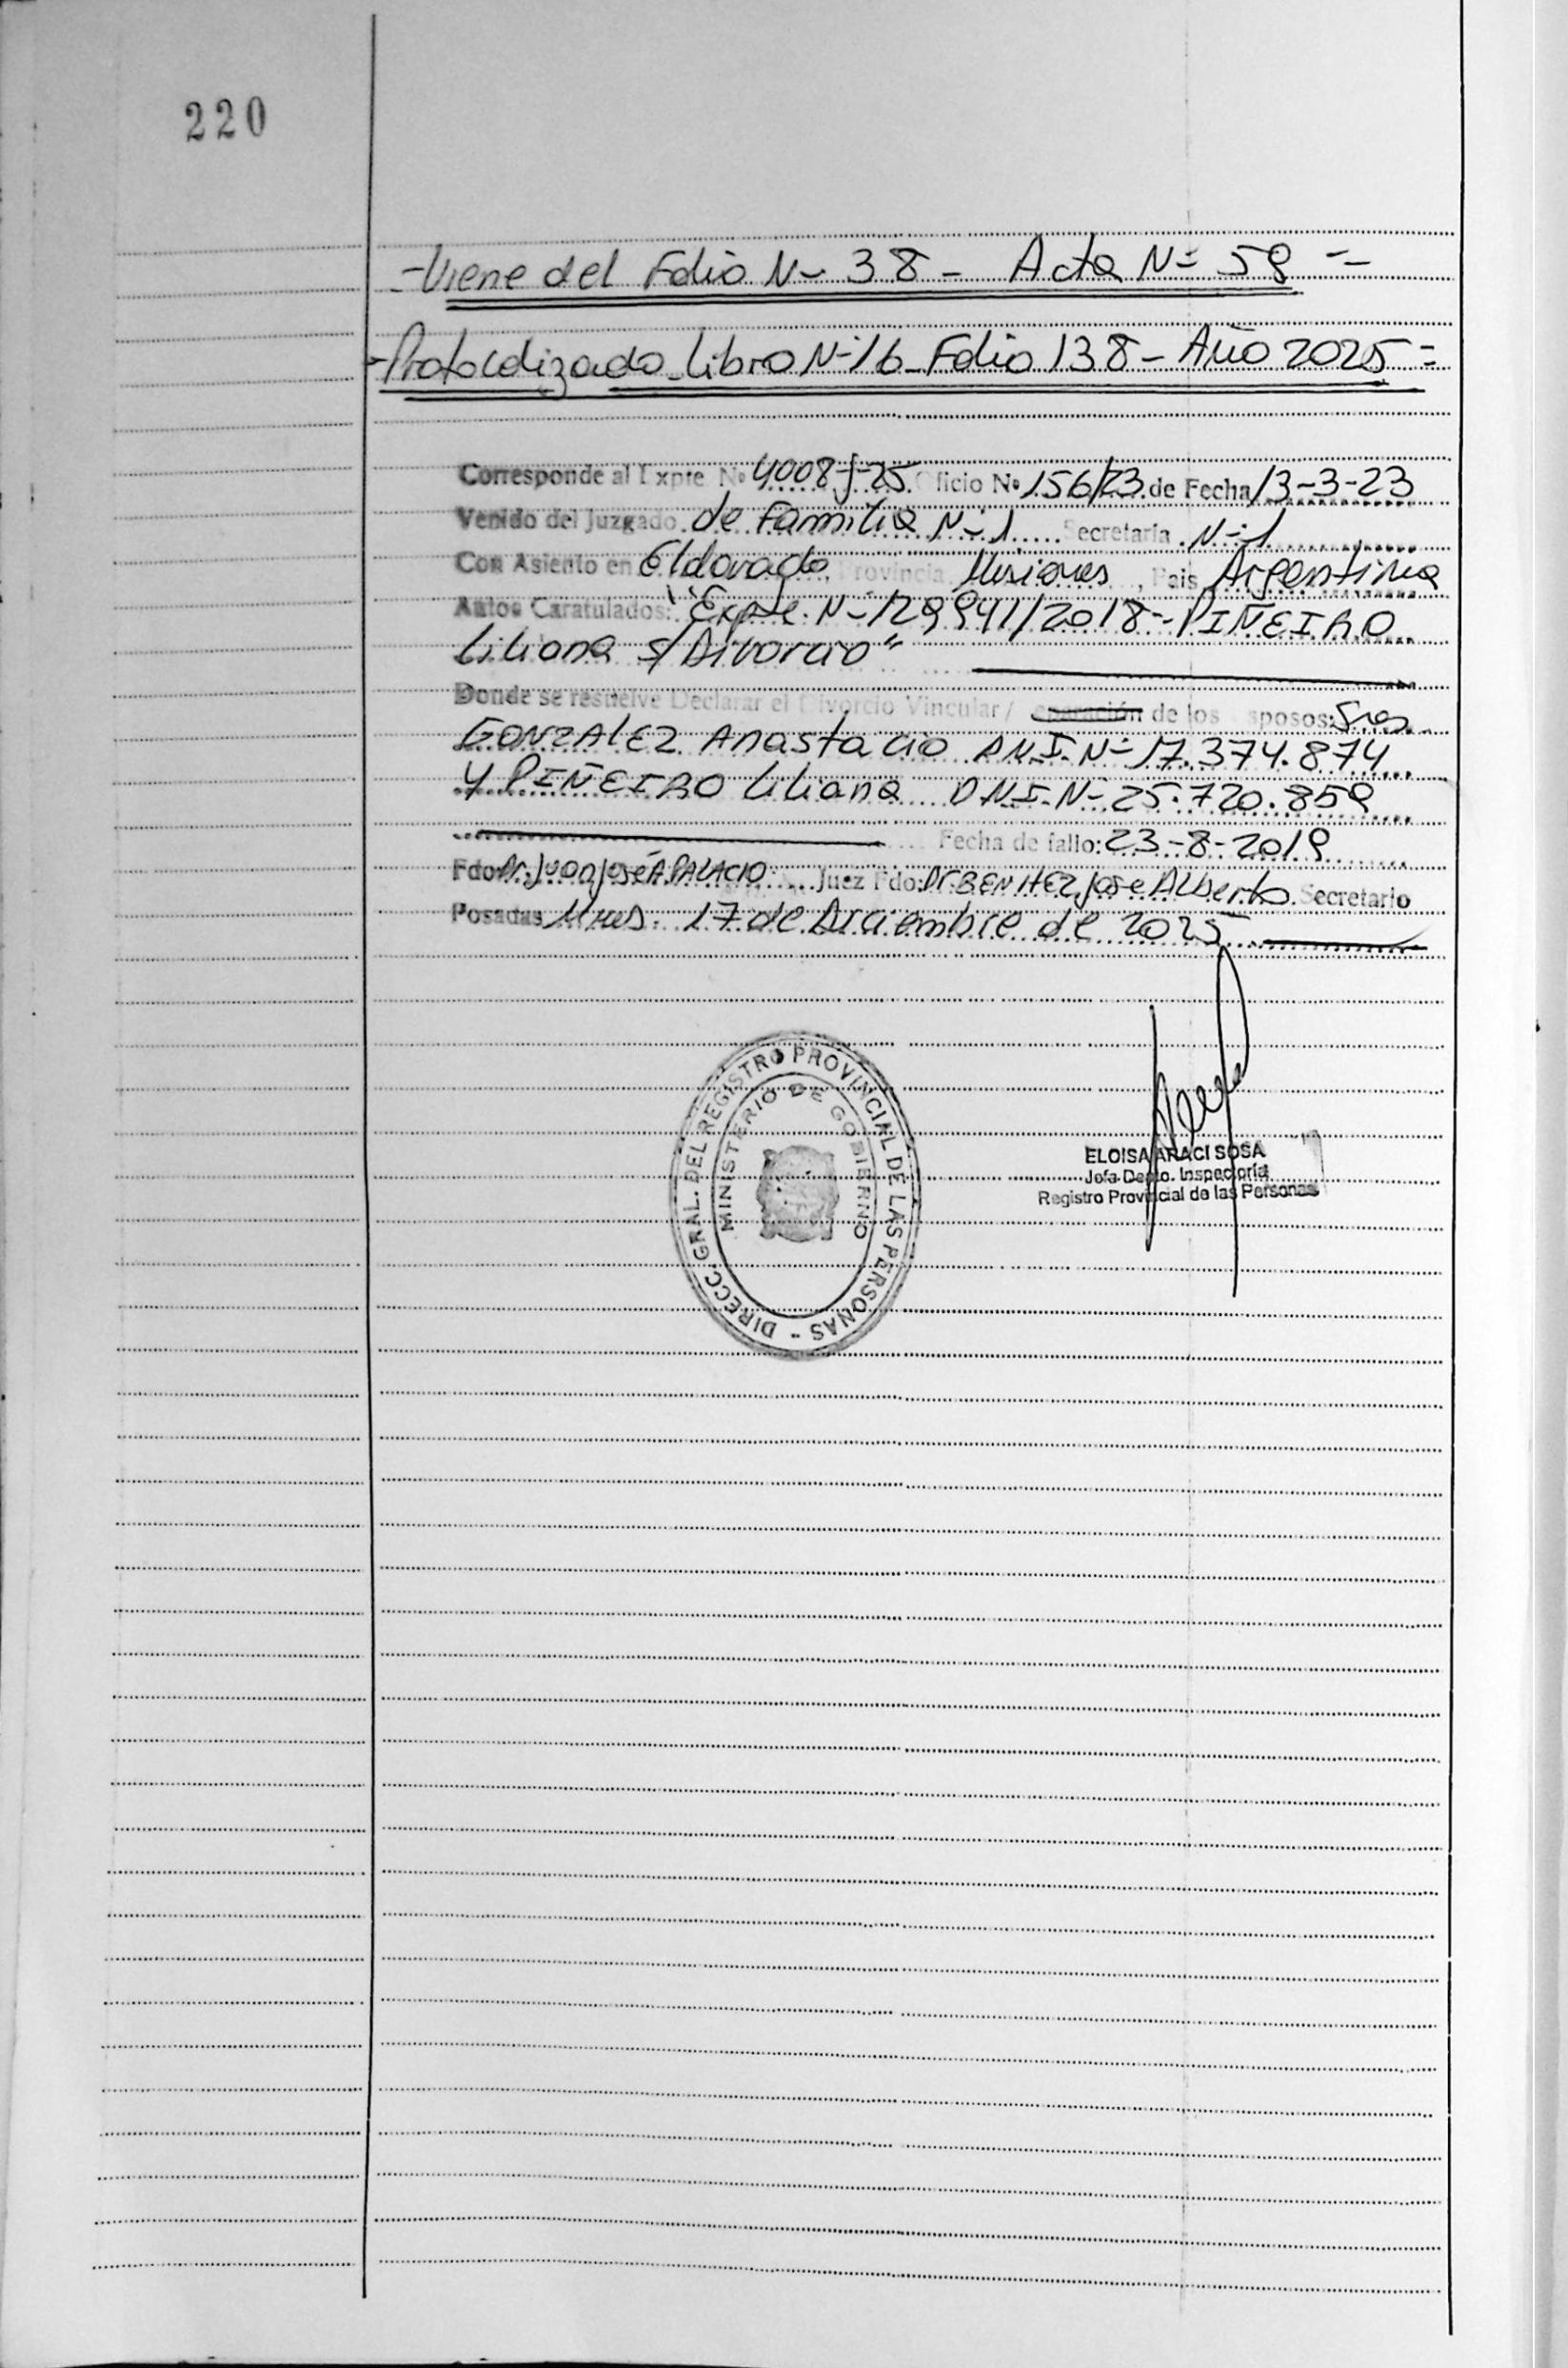 220
- Viene del Folio N- 38 - Acta N- 59 -
- Protocolizado Libro N-16 Folio 138 - Año 2025 =
Corresponde al Expte Nº 4008-J-25. Oficio Nº 156/23 de Fecha 13-3-23
Venido del Juzgado de Familia N-1 Secretaria N-1
Con Asiento en Eldorado, Provincia Misiones, Pais Argentina
Autos Caratulados: "Expte. N-129941/2018- PIÑEIRO
Liliana s/Divorcio"
Donde se resuelve Declarar el Divorcio Vincular / eparación de los sposos: Sres
GONZALEZ Anastacio D.N.I. N- 17.374.874
y PIÑEIRO Liliana DNI-N- 25.720.859
Fecha de fallo: 23-8-2019
Fdo Dr. Juan José A. PALACIO Juez Fdo: Dr BENITEZ Jose Alberto Secretario
Posadas Mnes. 17 de Diciembre de 2025
DIRECC. GRAL. DEL REGISTRO PROVINCIAL DE LAS PERSONAS -
MINISTERIO DE GOBIERNO
ELOISA ARACI SOSA
Jefa Depto. Inspectoría
Registro Provincial de las Personas